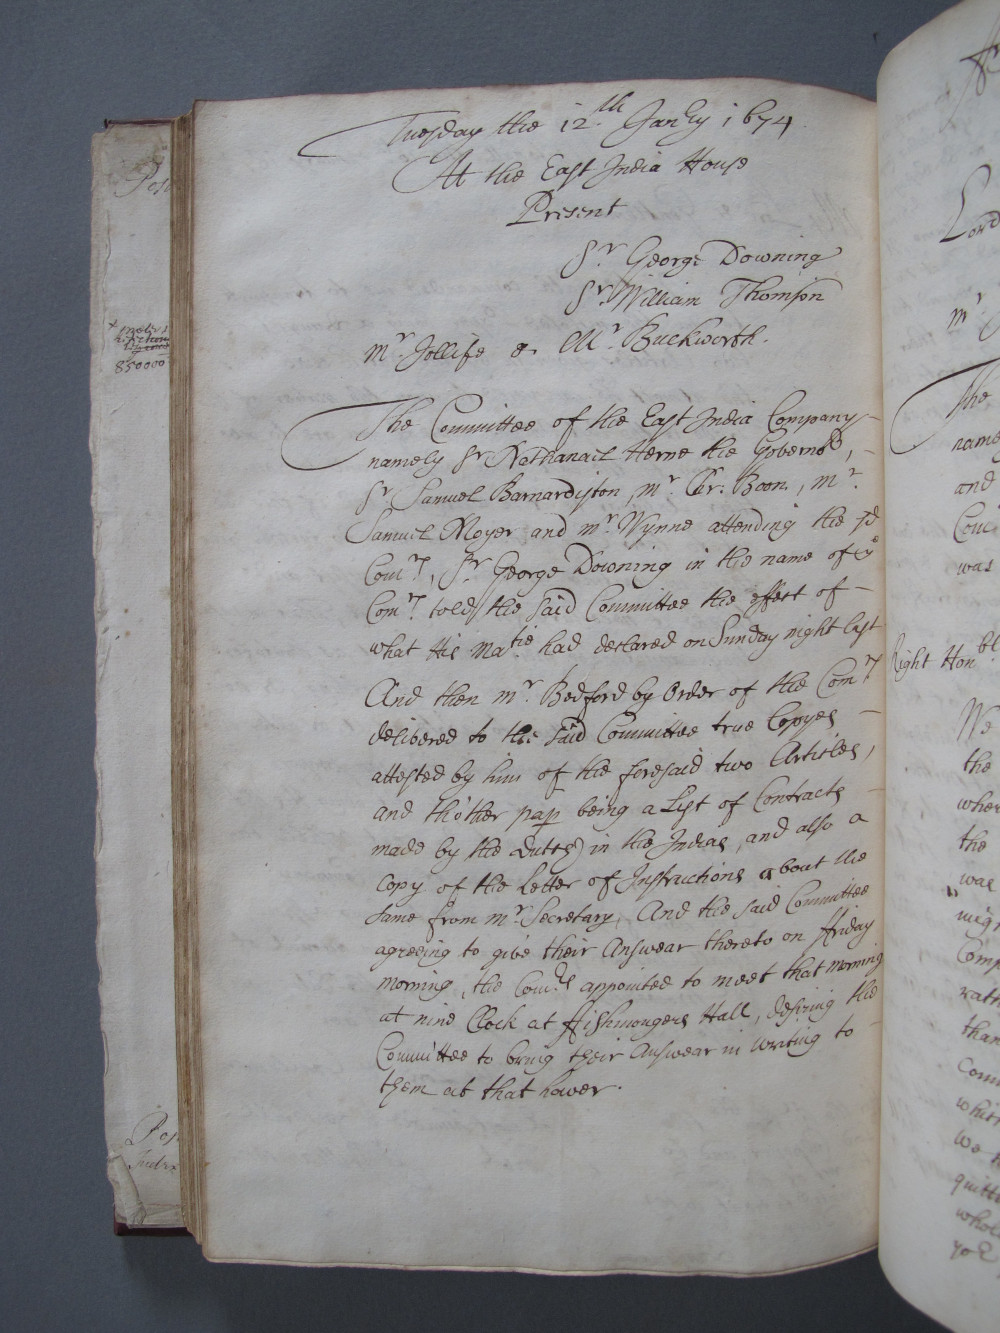 Tuesday the 12th Janry 1674
At the East India House
Present
Sr George Downing
Sr William Thomson
Mr Jollife & Mr Buckworth.
The Committee of the East India Company
namely Sr Nathanail Herne the Governor,
Sr Samuel Barnardiston, Mr Chr. Boon, Mr
Samuel Moyer and Mr Wynne attending the sd
Comrs, Sr George Downing in the name of ye
Comrs told the said Committee the effect of
what His Matie had declared on Sunday night last
And then Mr Bedford by Order of the Comrs
delivered to the said Committee true Copyes
attested by him of the foresaid two Articles,
and th'other pap being a List of Contracts
made by the Dutch in the Indias, and also a
Copy of the Letter of Instructions about the
same from Mr Secretary, And the said Committee
agreeing to give their Answear thereto on ffriday
morning, the Comrs appointed to meet that morning
at nine Clock at ffishmongers Hall, desiring the
Committee to bring their Answear in writing to
them at that hower.
850000
Lord
Mr
The
namely
and
was
Right Honble
We
the
wher
the
was
Comp
rath
than
We
quitt
whol